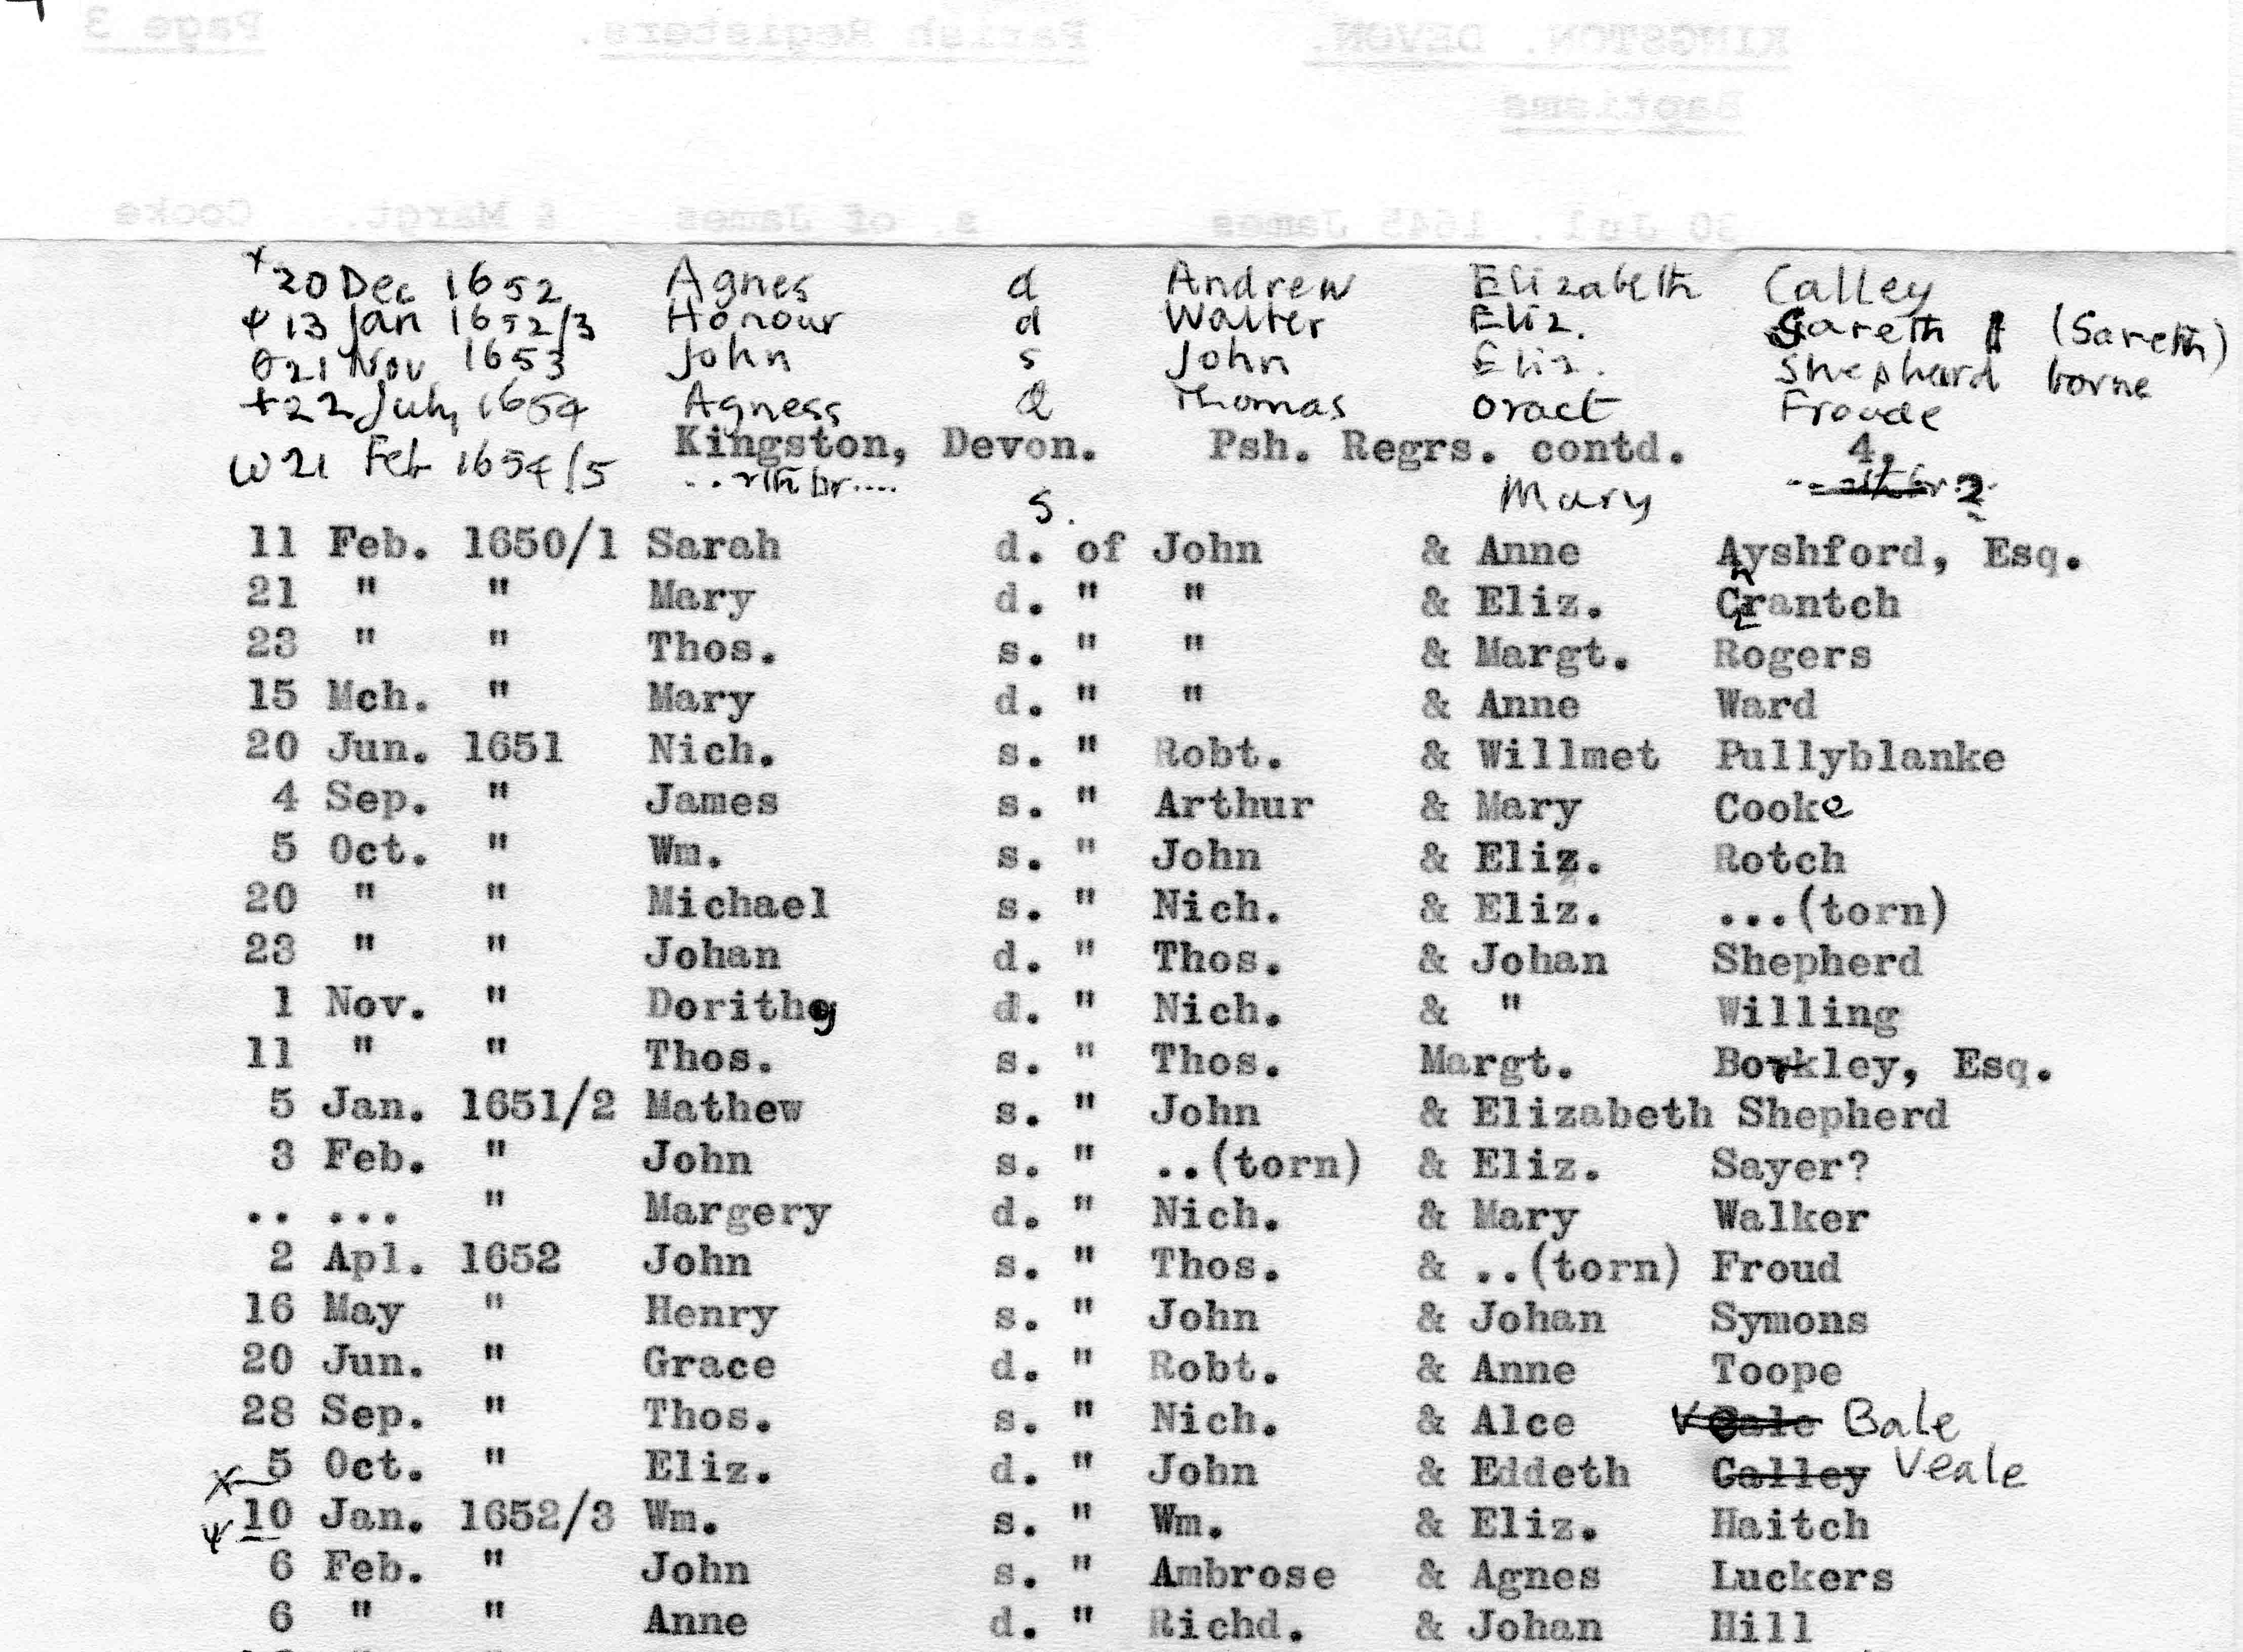 KINGSTON. DEVON. Parish Registers. Page 3
Baptisms
30 Jul. 1645 James s. of James & Margt. Cooke
x 20 Dec 1652 Agnes d Andrew Elizabeth Calley
ψ 13 Jan 1652/3 Honour d Walter Eliz. Sareth (Sareth)
θ 21 Nov 1653 John s John Eliz. Shephard borne
+ 22 July 1654 Agness d Thomas oract Froude
Kingston, Devon. Psh. Regrs. contd. 4.
w 21 Feb 1654/5 s. Mary
11 Feb. 1650/1 Sarah d. of John & Anne Ayshford, Esq.
21 " " Mary d. " " & Eliz. Crantch
23 " " Thos. s. " " & Margt. Rogers
15 Mch. " Mary d. " " & Anne Ward
20 Jun. 1651 Nich. s. " Robt. & Willmet Pullyblanke
4 Sep. " James s. " Arthur & Mary Cooke
5 Oct. " Wm. s. " John & Eliz. Rotch
20 " " Michael s. " Nich. & Eliz. ...(torn)
23 " " Johan d. " Thos. & Johan Shepherd
1 Nov. " Dorithy d. " Nich. & " Willing
11 " " Thos. s. " Thos. Margt. Borkley, Esq.
5 Jan. 1651/2 Mathew s. " John & Elizabeth Shepherd
3 Feb. " John s. " ..(torn) & Eliz. Sayer?
.. ... " Margery d. " Nich. & Mary Walker
2 Apl. 1652 John s. " Thos. & ..(torn) Froud
16 May " Henry s. " John & Johan Symons
20 Jun. " Grace d. " Robt. & Anne Toope
28 Sep. " Thos. s. " Nich. & Alce Veale Bale
x 5 Oct. " Eliz. d. " John & Eddeth Calley Veale
ψ 10 Jan. 1652/3 Wm. s. " Wm. & Eliz. Haitch
6 Feb. " John s. " Ambrose & Agnes Luckers
6 " " Anne d. " Richd. & Johan Hill